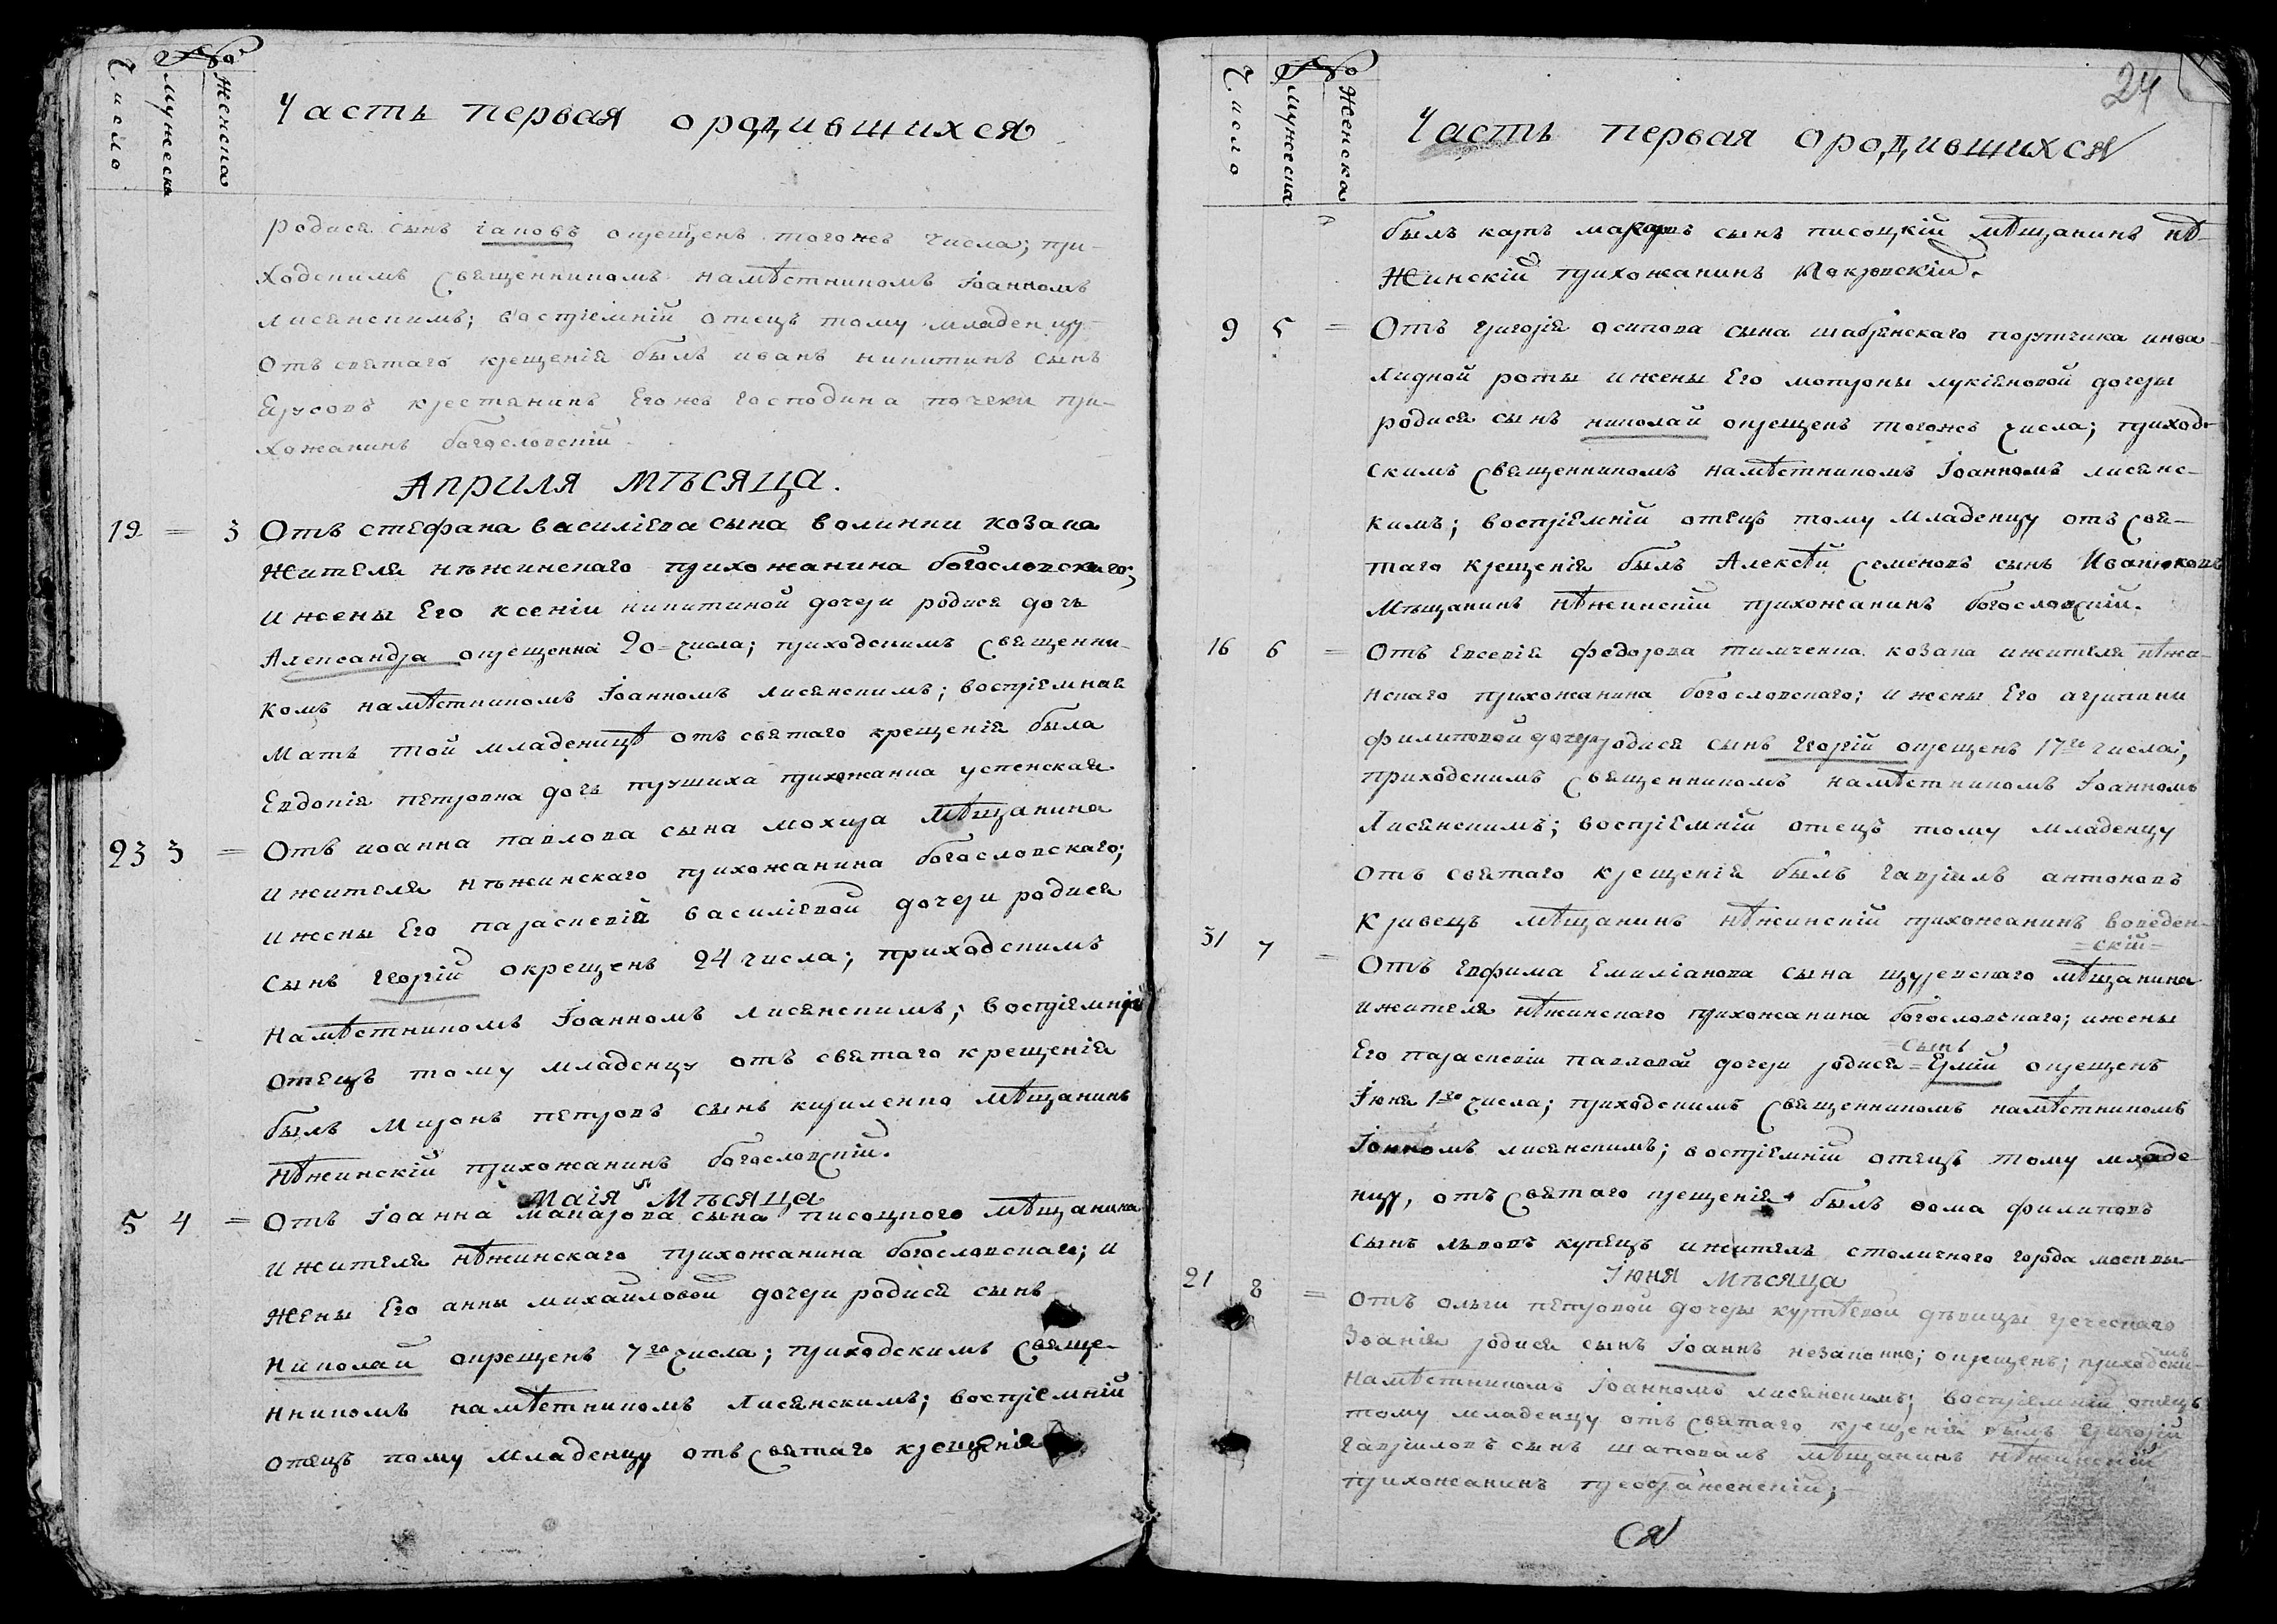 Число
№
мужеска
женска
Часть первая о родившихся
родися сынъ Іаковъ окрещенъ тогожъ числа; при-
ходскимъ священникомъ намѣстникомъ Іоанномъ
лисянскимъ; воспріемній отецъ тому младенцу
отъ святаго крещенія былъ иванъ никитинъ сынъ
крестянинъ Егожъ господина почеки при-
хожанинъ богословскій.
Априля мѣсяца.
19 = 3 Отъ стефана василіева сына волинки козака
жителя нѣжинскаго прихожанина богословского;
и жены Его ксеніи никитиной дочери родися дочь
Александра окрещенна 20= числа; приходскимъ священни-
комъ намѣстникомъ Іоанномъ лисянскимъ; воспріемная
мать той младеницѣ отъ святаго крещенія была
Евдокія петровна дочь прушиха прихожанка успенская
23 3 = Отъ иоанна павлова сына мохира мѣщанина
и жителя нѣжинскаго прихожанина богословскаго;
и жены Его параскевій василіевой дочери родися
сынъ георгій окрещенъ 24 числа; приходскимъ
намѣстникомъ Іоанномъ лисянскимъ; воспріемній
отецъ тому младенцу отъ святаго крещенія
былъ миронъ петровъ сынъ кириленко мѣщанинъ
нѣжинскій прихожанинъ богословскій.
Маія мѣсяца
5 4 = Отъ Іоанна макарова сына писоцкого мѣщанина
и жителя нѣжинскаго прихожанина богословскаго; и
жены Его анны михайловой дочери родися сынъ
николай окрещенъ 7го числа; приходскимъ свяще-
нникомъ намѣстникомъ лисянскимъ; воспріемній
отецъ тому младенцу отъ святаго крещенія
24
Число
№
мужеска
женска
Часть первая о родившихся
былъ карпъ макаровъ сынъ писоцкій мѣщанинъ нѣ-
жинскій прихожанинъ Покровскій.
9 5 = Отъ григорія осипова сына шабрянскаго порутчика инва-
лидной роты и жены Его мотроны лукіяновой дочеры
родися сынъ николай окрещенъ тогожъ числа; приход-
скимъ священникомъ намѣстникомъ Іоанномъ лисянс-
кимъ; воспріемній отецъ тому младенцу отъ свя-
таго крещенія былъ Алексѣй семеновъ сынъ Иванюковъ
мѣщанинъ нѣжинскій прихожанинъ богословскій.
16 6 = Отъ Евсевія федорова тимченка козака и жителя нѣжи-
нскаго прихожанина богословскаго; и жены Его агрипини
филиповой дочери родися сынъ георгій окрещенъ 17го числа;
приходскимъ священникомъ намѣстникомъ Іоанномъ
лисянскимъ; воспріемній отецъ тому младенцу
отъ святаго крещенія былъ гавріилъ антоновъ
кривецъ мѣщанинъ нѣжинскій прихожанинъ воведен-
=скій=
31 7 = Отъ Евфима Емиліанова сына щуревскаго мѣщанина
и жителя нѣжинскаго прихожанина богословскаго; и жены
=сынъ
Его параскевіи павловой дочери родися=Ермій окрещенъ
Іюня 1го числа; приходскимъ священникомъ намѣстникомъ
Іоанномъ лисянскимъ; воспріемній отецъ тому младе-
нцу, отъ святаго крещенія былъ ѳома филиповъ
сынъ львовъ купецъ и житель столичного города москвы
Іюня мѣсяца
21 8 = Отъ ольги петровой дочеры куртѣвой дѣвицы греческаго
званія родися сынъ Іоаннъ незаконно; окрещенъ; приходски-
мъ
намѣстникомъ Іоанномъ лисянскимъ; воспріемній отецъ
тому младенцу отъ святаго крещенія былъ григорій
гавріиловъ сынъ шаповалъ мѣщанинъ нѣжинскій
прихожанинъ преображенскій;
ся